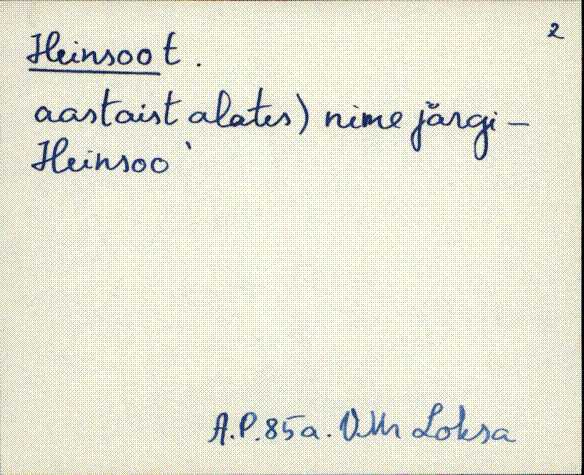 2
Heinsoo t.
aastaist alates) nime järgi –
Heinsoo `
A.P. 85a. VMr Loksa